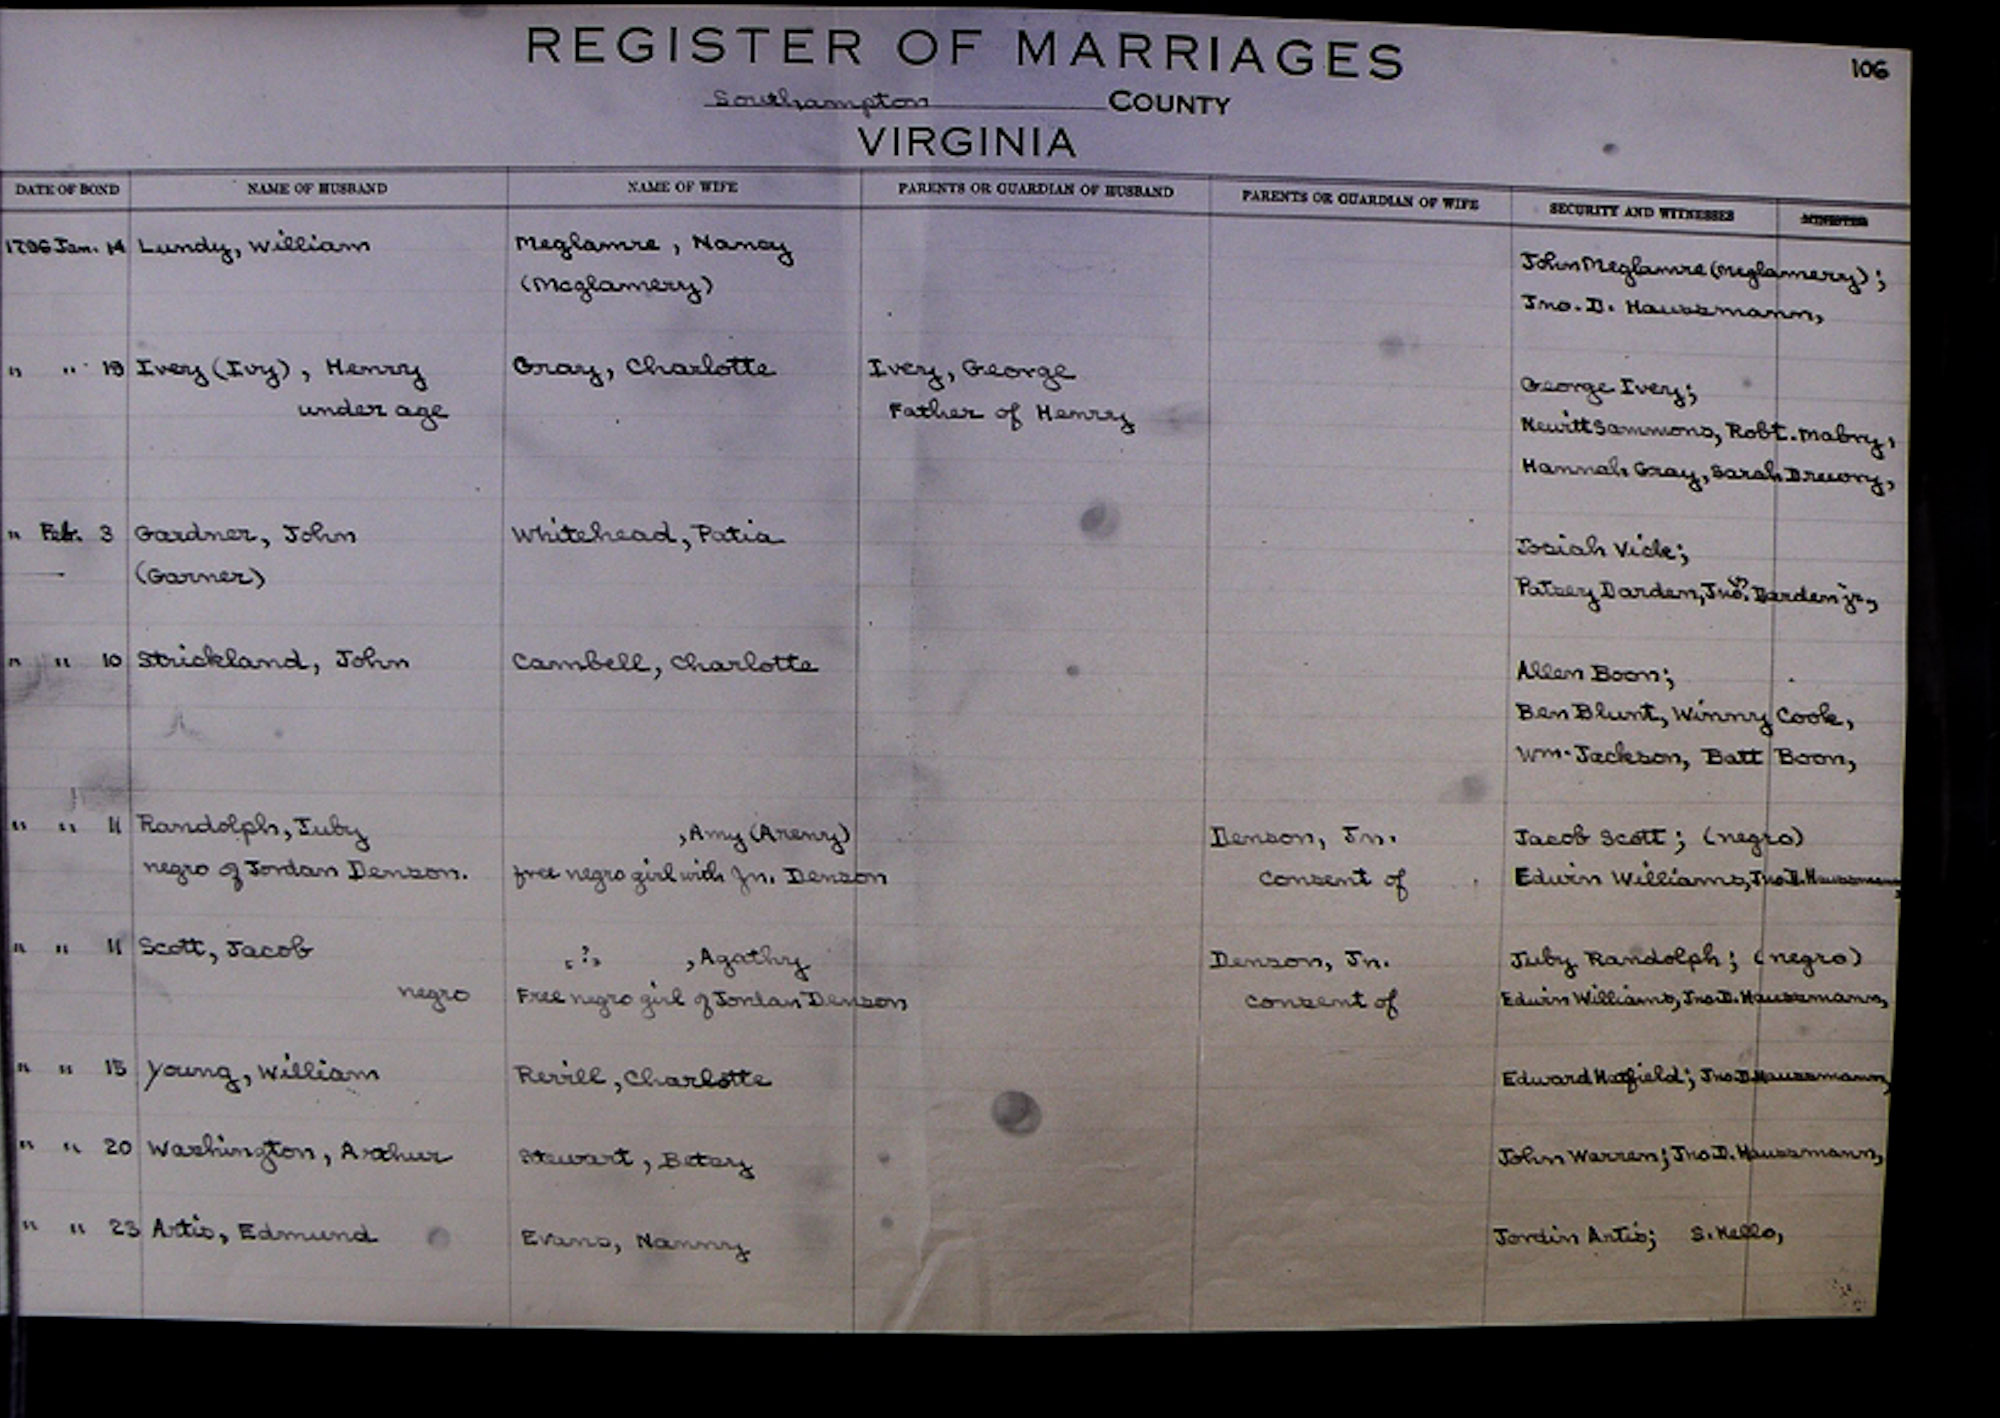 REGISTER OF MARRIAGES
106
Southampton COUNTY
VIRGINIA
DATE OF BOND NAME OF HUSBAND NAME OF WIFE PARENTS OR GUARDIAN OF HUSBAND PARENTS OR GUARDIAN OF WIFE SECURITY AND WITNESSES MINISTER
1796 Jan. 14 Lundy, William Meglamre, Nancy John Meglamre (Meglamery);
(Meglamery) Jno. D. Haussmann,
" " 19 Ivery (Ivy), Henry Gray, Charlotte Ivery, George George Ivery;
under age Father of Henry Hewitt Sammons, Robt. Mabry,
Hannah Gray, Sarah Drewry,
" Feb. 3 Gardner, John Whitehead, Patia Josiah Vick;
(Garner) Patsey Darden, Jno. Darden jr.,
" " 10 Strickland, John Cambell, Charlotte Allen Boon;
Ben Blunt, Winny Cook,
Wm. Jackson, Batt Boon,
" " 11 Randolph, Juby , Amy (Areny) Denson, Jn. Jacob Scott; (negro)
negro of Jordan Denson. free negro girl with Jn. Denson consent of Edwin Williams, Jno D. Haussmann,
" " 11 Scott, Jacob ? , Agathy Denson, Jn. Juby Randolph; (negro)
negro Free negro girl of Jordan Denson consent of Edwin Williams, Jno. D. Haussmann,
" " 15 Young, William Revill, Charlotte Edward Hatfield; Jno D Haussmann,
" " 20 Washington, Arthur Stewart, Betsy John Warren; Jno D. Haussmann,
" " 23 Artis, Edmund Evans, Nanny Jordin Artis; S. Kello,